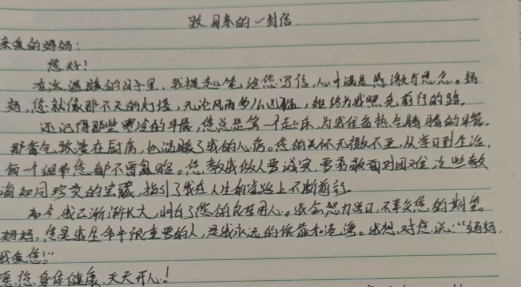 致母亲的一封信
亲爱的妈妈:
您好!
在这温暖的日子里,我提起笔,给您写信,心中满是感激与思念。妈
妈,您就像那不灭的灯塔,无论风雨多么,始终为我照亮前行的路。
还记得那些寒冷的早晨,您总是第一个起床,为我准备热气腾腾的早餐。
那香气,弥漫在厨房,也温暖了我的心房。您的关怀无微不至,从学习到生活,
每一个细节您都不曾忽略。您教我做人要诚实,要勇敢面对困难,这些教
诲如同珍贵的宝藏,指引了我在人生的道路上不断前行。
如今,我已渐渐长大,明白了您的良苦用心。我会努力学习,不辜负您的期望。
妈妈,您是我生命中很重要的人,是我永远的依靠和港湾。我想对您说:“妈妈,
我爱您!”
愿您身体健康,天天开心!